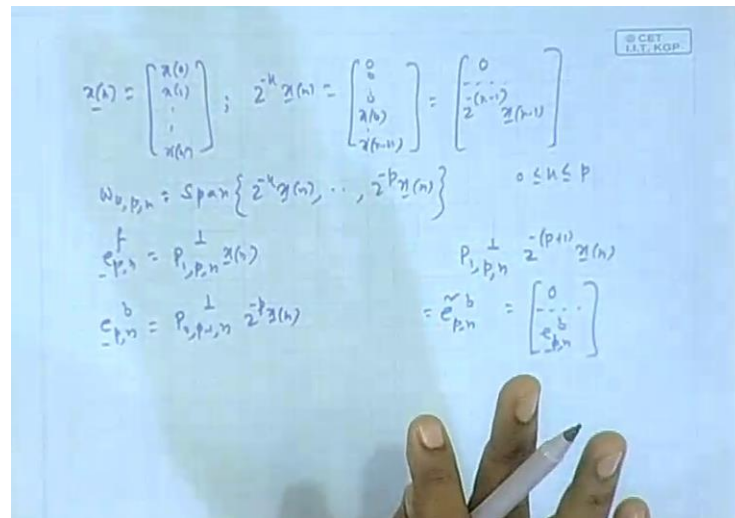 © CET
I.I.T. KGP
x(n) = [x(0) x(1) . . x(n)] ; z^{-k} x(n) = [0 0 . 0 x(0) . x(n-k)] = [0 ... z^{-(k-1)} x(n-1)]
W_{k,p,n} = Span{z^{-k} x(n), .., z^{-p} x(n)} 0 ≤ k ≤ p
e^f_{p,n} = P^⊥_{1,p,n} x(n) P^⊥_{1,p,n} z^{-(p+1)} x(n)
e^b_{p,n} = z^{-p} x(n) = ẽ^b_{p,n} = [0 .... e^b_{p,n}]